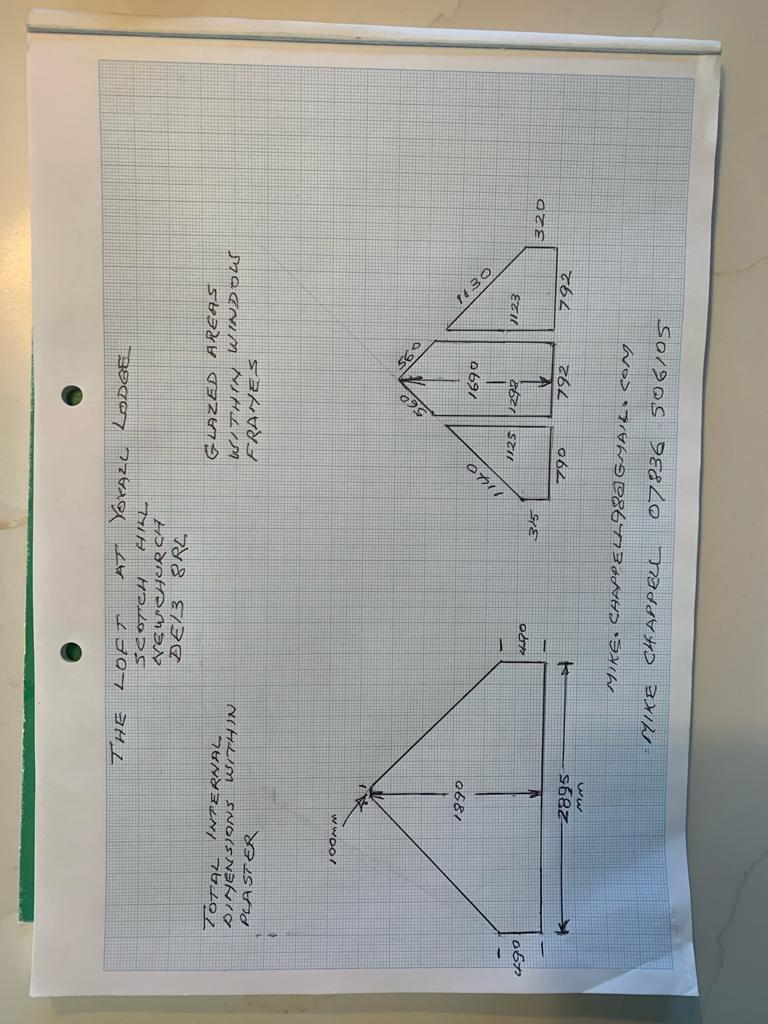 THE LOFT AT YOXALL LODGE
SCOTCH HILL
NEWCHURCH
DE13 8RL
TOTAL INTERNAL
DIMENSIONS WITHIN
PLASTER
100mm
1890
490
490
2895
mm
GLAZED AREAS
WITHIN WINDOW
FRAMES
560
560
1140
1690
1130
1125
1298
1123
315
320
790
792
792
MIKE.CHAPPELL98@GMAIL.COM
MIKE CHAPPELL 07836 506105